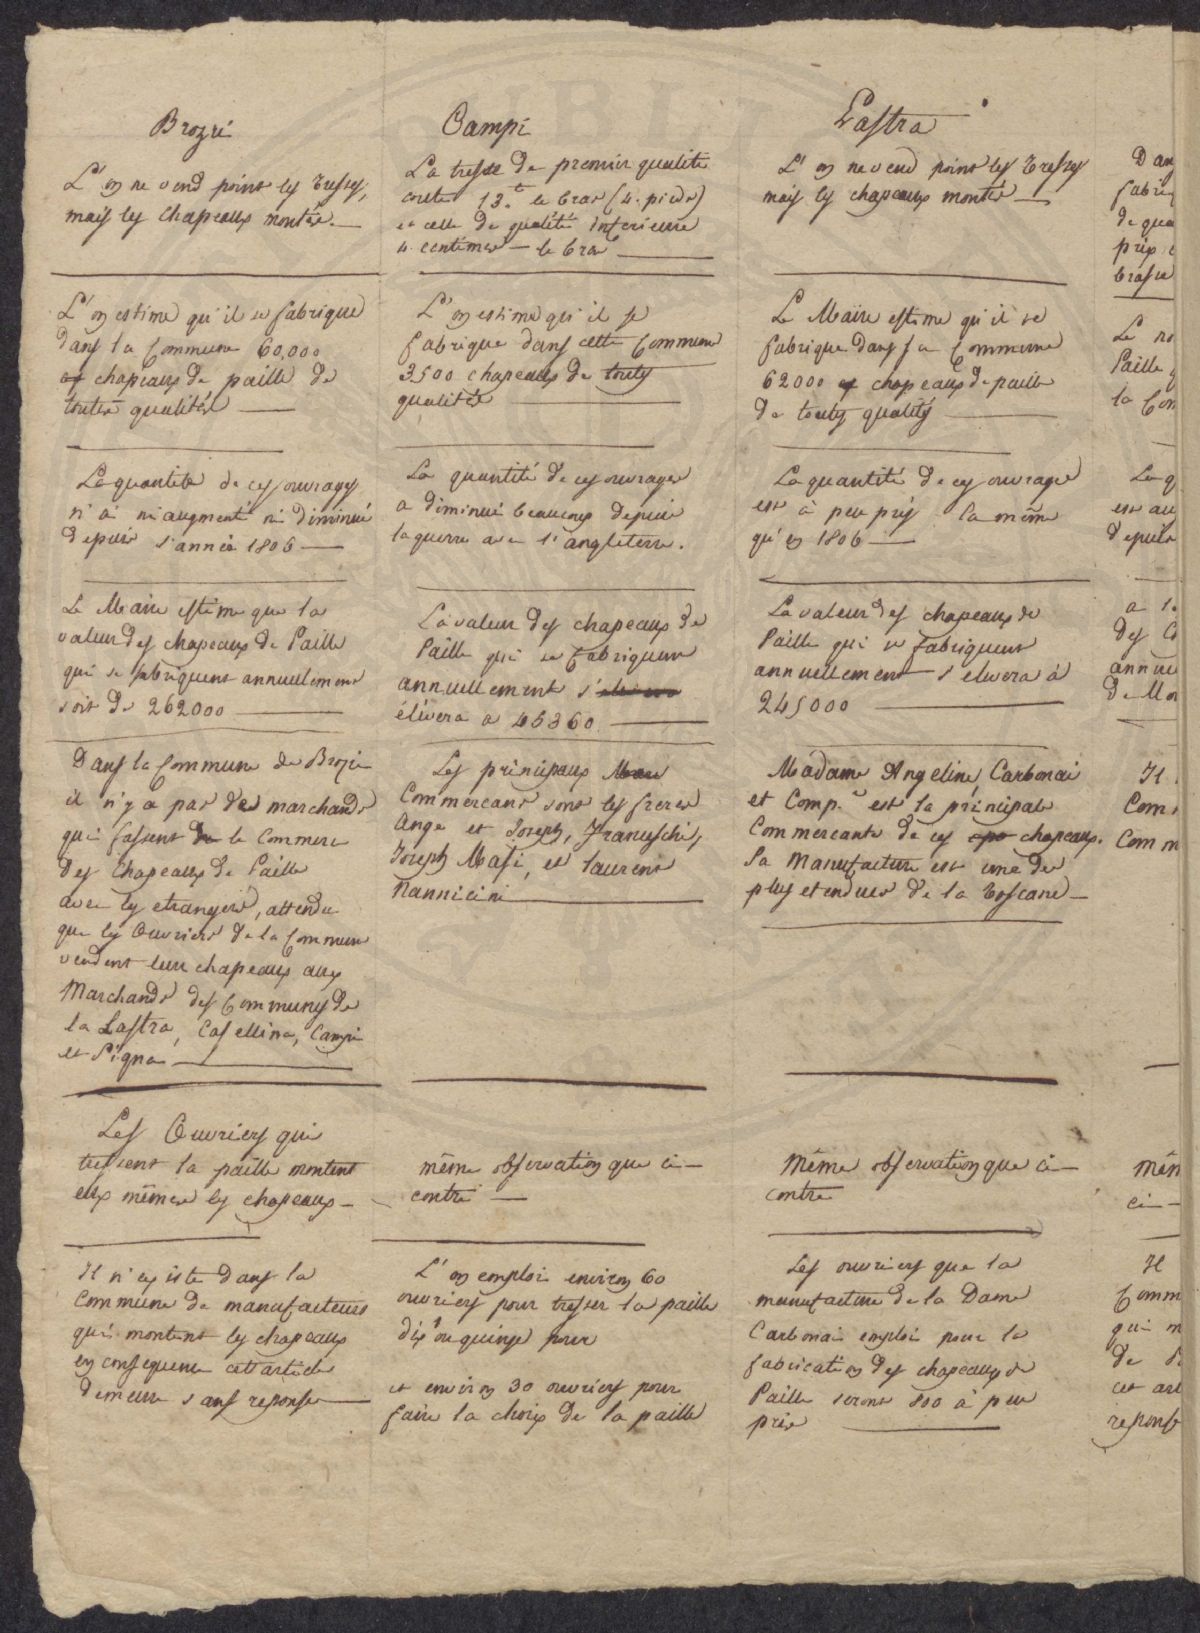 Brozzi
L'on ne vend point les tresses,
mais les chapeaux montés.
L'on estime qu'il se fabrique
dans la Commune 60,000
chapeaux de paille de
toutes qualités
La quantité de ces ouvrages
n'a ni augmenté ni diminué
depuis l'année 1806
Le Maire estime que la
valeur des chapeaux de Paille
qui se fabriquent annuellement
soit de 262000
Dans la Commune de Brozzi
il n'y a pas des marchands
qui fassent de le Commerce
des Chapeaux de Paille
avec les etrangers, attendu
que les Ouvriers de la Commune
vendent leur chapeaux aux
Marchands des Communes de
la Lastra, Casellina, Campi
et Signa
Les Ouvriers qui
tressent la paille montent
eux mêmes les chapeaux
Il n'existe dans la
Commune de manufacteurs
qui montent les chapeaux
en consequence cet article
demeure sans reponse
Campi
La tresse de premier qualité
coute 13.c le bras (4. pieds)
et celle de qualité inferieure
4 centimes le bras
L'on estime qu'il se
fabrique dans cette Commune
3500 chapeaux de toutes
qualités
La quantité de ces ouvrages
a diminué beaucoup depuis
la guerre avec l'angleterre.
La valeur des chapeaux de
Paille qui se fabriquent
annuellement s'
élévera a 45360
Les principaux
Commercans sont les freres
Ange et Joseph, Franceschi,
Joseph Masi, et Laurent
Nannicini
même observation que ci
contre
L'on emploi environ 60
ouvriers pour tresser la paille
dix ou quinze pour
et environ 30 ouvriers pour
faire la choix de la paille
Lastra
L'on ne vend point les tresses
mais les chapeaux montés
Le Maire estime qu'il se
fabrique dans sa Commune
62000 chapeaux de paille
de toutes qualités
La quantité de ces ouvrages
est à peu près la même
qu'en 1806
La valeur des chapeaux de
Paille qui se fabriquent
annuellement s'elevera à
245000
Madame Angeline Carbonai
et Comp.e est la principale
Commercante de ces chapeaux.
Sa Manufacture est une des
plus etendues de la Toscane
Même observation que ci
contre
Les ouvriers que la
manufacture de la Dame
Carbonai emploi pour la
fabrication des chapeaux de
Paille seront 800 à peu
près
Dan
fabri
de qua
prix
brasse
Le no
Paille
la Com
La q
est au
depuis
a
des C
annue
de Mon
Il
Com
Comm
Mêm
ci
Il
Comm
qui m
de
cet art
reponse